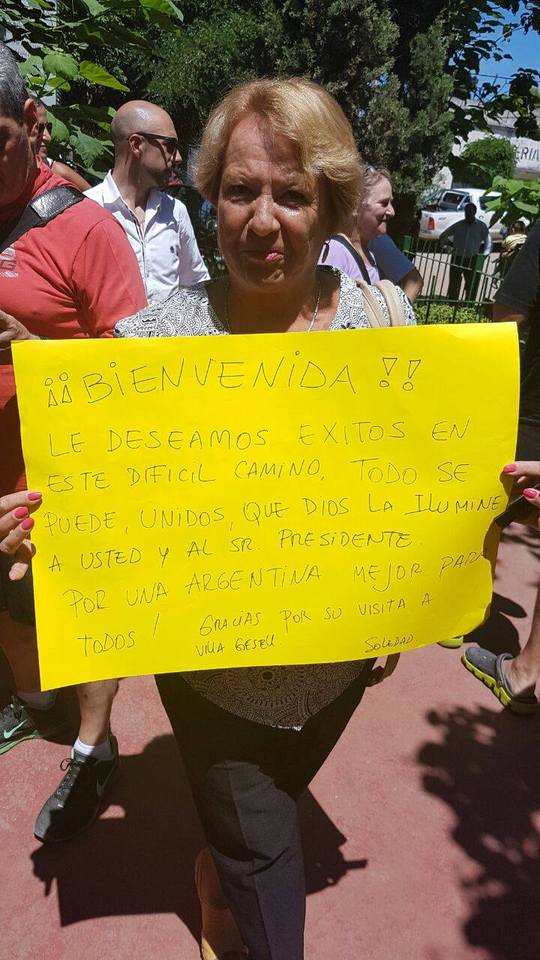 ¡¡BIENVENIDA!!
LE DESEAMOS EXITOS EN
ESTE DIFICIL CAMINO. TODO SE
PUEDE, UNIDOS, QUE DIOS LA ILUMINE
A USTED Y AL SR. PRESIDENTE.
POR UNA ARGENTINA MEJOR PARA
TODOS! GRACIAS POR SU VISITA A
VILLA GESELL. SOLEDAD
ERIA